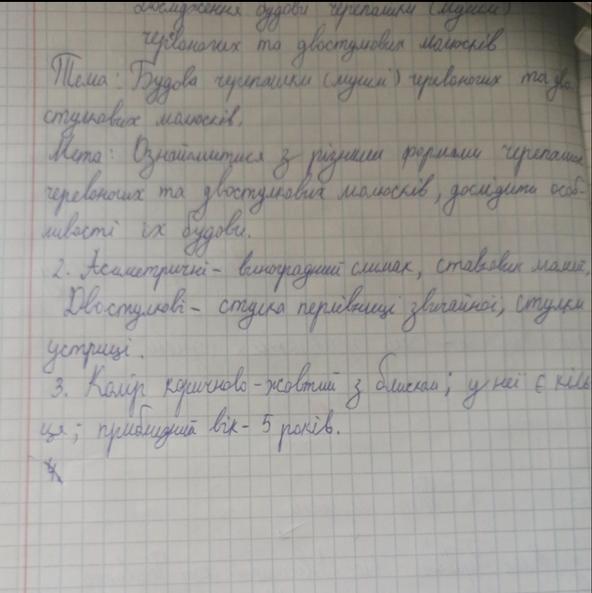 Дослідження будови черепашки (мушлі)
червоногих та двостулкових молюсків
Тема: Будова черепашки (мушлі) черевоногих та дво
стулкових молюсків.
Мета: Ознайомитися з різними формами черепашок
черевоногих та двостулкових молюсків, дослідити особ-
ливості їх будови.
2. Асиметричні - виноградний слимак, ставковик малий.
Двостулкові - стулка перлівниці звичайної, стулки
устриці.
3. Колір коричнево-жовтий з блиском; у неї є кіль
ця; приблизний вік - 5 років.